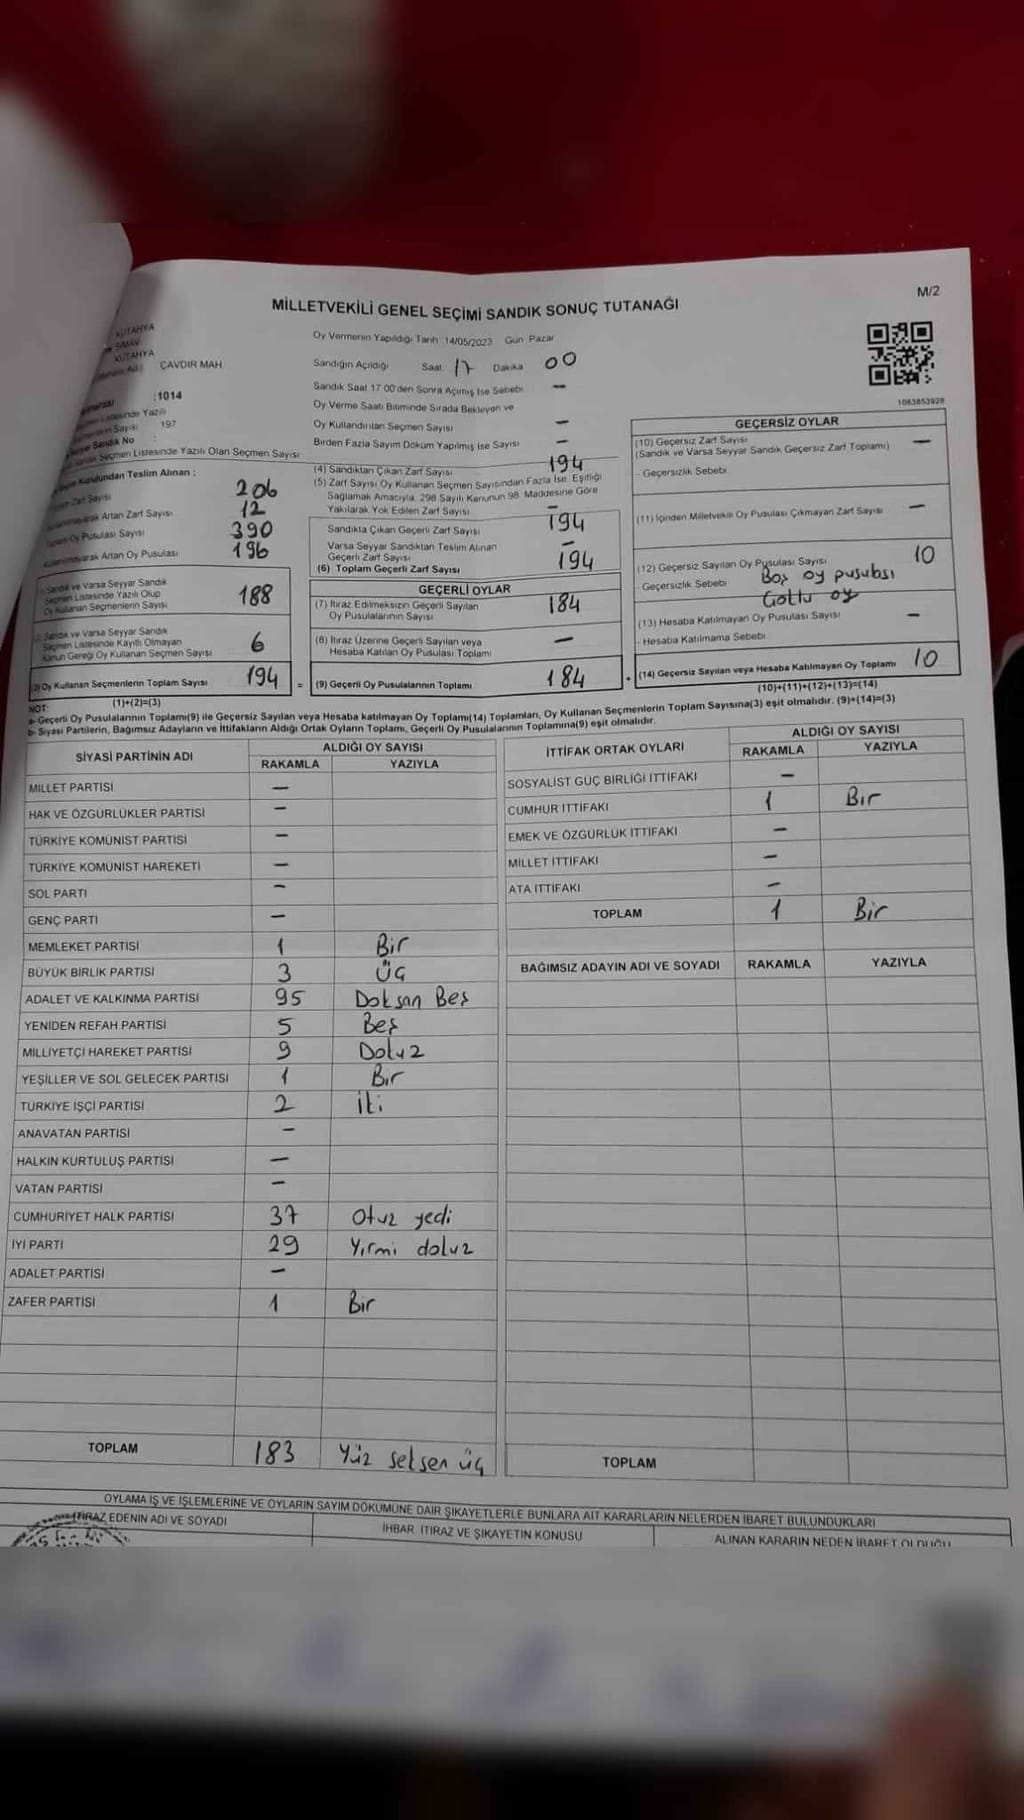 M/2
MİLLETVEKİLİ GENEL SEÇİMİ SANDIK SONUÇ TUTANAĞI
KÜTAHYA
SİMAV
KÜTAHYA
ÇAVDIR MAH
:1014
197
Seyyar Sandık No :
Seçmen Listesinde Yazılı Olan Seçmen Sayısı
Kurulundan Teslim Alınan :
Zarf Sayısı 206
Artan Zarf Sayısı 12
Oy Pusulası Sayısı 390
Artan Oy Pusulası 196
Sandık ve Varsa Seyyar Sandık
Seçmen Listesinde Yazılı Olup
Oy Kullanan Seçmenlerin Sayısı 188
Sandık ve Varsa Seyyar Sandık
Seçmen Listesinde Kayıtlı Olmayan
Kanun Gereği Oy Kullanan Seçmen Sayısı 6
(3) Oy Kullanan Seçmenlerin Toplam Sayısı 194 =
(1)+(2)=(3)
Oy Vermenin Yapıldığı Tarih: 14/05/2023 Gün: Pazar
Sandığın Açıldığı Saat: 17 Dakika 00
Sandık Saat 17 00'den Sonra Açılmış İse Sebebi –
Oy Verme Saati Bitiminde Sırada Bekleyen ve
Oy Kullandırılan Seçmen Sayısı –
Birden Fazla Sayım Döküm Yapılmış İse Sayısı –
(4) Sandıktan Çıkan Zarf Sayısı 194
(5) Zarf Sayısı, Oy Kullanan Seçmen Sayısından Fazla İse, Eşitliği
Sağlamak Amacıyla, 298 Sayılı Kanunun 98. Maddesine Göre
Yakılarak Yok Edilen Zarf Sayısı –
Sandıkta Çıkan Geçerli Zarf Sayısı 194
Varsa Seyyar Sandıktan Teslim Alınan
Geçerli Zarf Sayısı –
(6) Toplam Geçerli Zarf Sayısı 194
GEÇERLİ OYLAR
(7) İtiraz Edilmeksizin Geçerli Sayılan
Oy Pusulalarının Sayısı 184
(8) İtiraz Üzerine Geçerli Sayılan veya
Hesaba Katılan Oy Pusulası Toplamı –
(9) Geçerli Oy Pusulalarının Toplamı 184 +
1063853928
GEÇERSİZ OYLAR
(10) Geçersiz Zarf Sayısı
(Sandık ve Varsa Seyyar Sandık Geçersiz Zarf Toplamı) –
- Geçersizlik Sebebi
(11) İçinden Milletvekili Oy Pusulası Çıkmayan Zarf Sayısı –
(12) Geçersiz Sayılan Oy Pusulası Sayısı 10
- Geçersizlik Sebebi Boş oy pusulası
oy
(13) Hesaba Katılmayan Oy Pusulası Sayısı –
- Hesaba Katılmama Sebebi
(14) Geçersiz Sayılan veya Hesaba Katılmayan Oy Toplamı 10
(10)+(11)+(12)+(13)=(14)
NOT:
a- Geçerli Oy Pusulalarının Toplamı(9) ile Geçersiz Sayılan veya Hesaba katılmayan Oy Toplamı(14) Toplamları, Oy Kullanan Seçmenlerin Toplam Sayısına(3) eşit olmalıdır. (9)+(14)=(3)
b- Siyasi Partilerin, Bağımsız Adayların ve İttifakların Aldığı Ortak Oyların Toplamı, Geçerli Oy Pusulalarının Toplamına(9) eşit olmalıdır.
SİYASİ PARTİNİN ADI ALDIĞI OY SAYISI
RAKAMLA YAZIYLA
MİLLET PARTİSİ –
HAK VE ÖZGÜRLÜKLER PARTİSİ –
TÜRKİYE KOMÜNİST PARTİSİ –
TÜRKİYE KOMÜNİST HAREKETİ –
SOL PARTİ –
GENÇ PARTİ –
MEMLEKET PARTİSİ 1 Bir
BÜYÜK BİRLİK PARTİSİ 3 Üç
ADALET VE KALKINMA PARTİSİ 95 Doksan Beş
YENİDEN REFAH PARTİSİ 5 Beş
MİLLİYETÇİ HAREKET PARTİSİ 9 Dokuz
YEŞİLLER VE SOL GELECEK PARTİSİ 1 Bir
TÜRKİYE İŞÇİ PARTİSİ 2 İki
ANAVATAN PARTİSİ –
HALKIN KURTULUŞ PARTİSİ –
VATAN PARTİSİ –
CUMHURİYET HALK PARTİSİ 37 Otuz yedi
İYİ PARTİ 29 Yirmi dokuz
ADALET PARTİSİ –
ZAFER PARTİSİ 1 Bir
TOPLAM 183 Yüz seksen üç
İTTİFAK ORTAK OYLARI ALDIĞI OY SAYISI
RAKAMLA YAZIYLA
SOSYALİST GÜÇ BİRLİĞİ İTTİFAKI –
CUMHUR İTTİFAKI 1 Bir
EMEK VE ÖZGÜRLÜK İTTİFAKI –
MİLLET İTTİFAKI –
ATA İTTİFAKI –
TOPLAM 1 Bir
BAĞIMSIZ ADAYIN ADI VE SOYADI RAKAMLA YAZIYLA
TOPLAM
OYLAMA İŞ VE İŞLEMLERİNE VE OYLARIN SAYIM DÖKÜMÜNE DAİR ŞİKAYETLERLE BUNLARA AİT KARARLARIN NELERDEN İBARET BULUNDUKLARI
İTİRAZ EDENİN ADI VE SOYADI İHBAR, İTİRAZ VE ŞİKAYETİN KONUSU ALINAN KARARIN NEDEN İBARET OLDUĞU